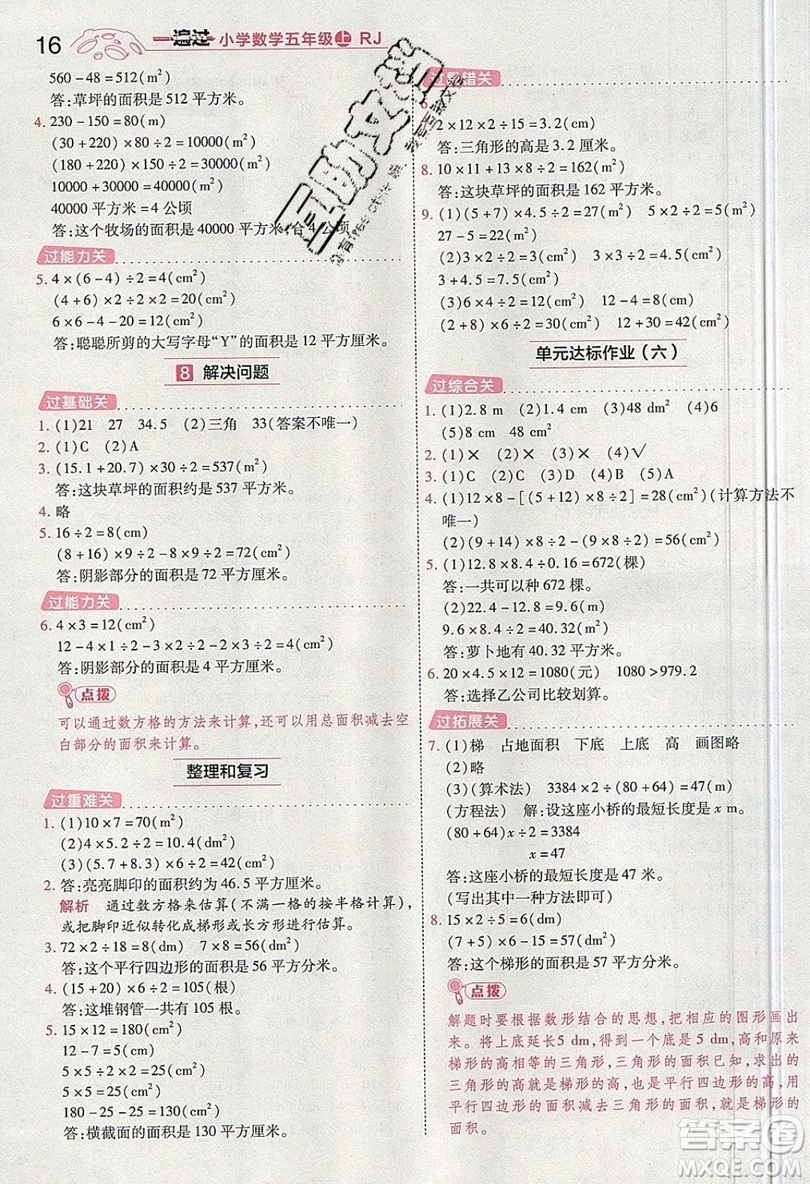 16 一遍过 小学数学五年级上 RJ
560－48＝512(m²)
答:草坪的面积是 512 平方米。
4. 230－150＝80(m)
(30＋220)×80÷2＝10000(m²)
(180＋220)×150÷2＝30000(m²)
10000＋30000＝40000(m²)
40000 平方米＝4 公顷
答:这个牧场的面积是 40000 平方米,合 4 公顷。
过能力关
5. 4×(6－4)÷2＝4(cm²)
(4＋6)×(6－2)÷2＝20(cm²)
6×6－4－20＝12(cm²)
答:聪聪所剪的大写字母“Y”的面积是 12 平方厘米。
8 解决问题
过基础关
1. (1)21 27 34.5 (2)三角 33(答案不唯一)
2. (1)C (2)A
3. (15.1＋20.7)×30÷2＝537(m²)
答:这块草坪的面积约是 537 平方米。
4. 略
5. 16÷2＝8(cm)
(8＋16)×(16－10)÷2＝72(cm²)
答:阴影部分的面积是 72 平方厘米。
过能力关
6. 4×3＝12(cm²)
12－4×1÷2－2×3÷2－2×3÷2＝4(cm²)
答:阴影部分的面积是 4 平方厘米。
点拨
可以通过数方格的方法来计算,还可以用总面积减去空
白部分的面积来计算。
整理和复习
过重难关
1. (1)10×7＝70(m²)
(2)4×5.2÷2＝10.4(dm²)
(3)(5.7＋8.3)×6÷2＝42(cm²)
2. 答:亮亮脚印的面积约是 46.5 平方厘米。
解析 通过数方格来估算(不满一格的按半格计算),
或把脚印近似转化成梯形或长方形进行估算。
3. 72×2÷18＝8(dm) 7×8＝56(dm²)
答:这个平行四边形的面积是 56 平方分米。
4. (15＋20)×6÷2＝105(根)
答:这堆钢管一共有 105 根。
5. 15×12＝180(cm²)
12－7＝5(cm)
5×5÷2×2＝25(cm²)
5×5＝25(cm²)
180－25－25＝130(cm²)
答:横截面的面积是 130 平方厘米。
过易错关
2×12×2÷15＝3.2(cm)
答:三角形的高是 3.2 厘米。
8. 10×11＋13×8÷2＝162(m²)
答:这块草坪的面积是 162 平方米。
9. (1)(5＋7)×4.5÷2＝27(cm²) 5×2÷2＝5(cm²)
27－5＝22(cm²)
(2)3×2÷2＝3(cm²) 3×3÷2＝4.5(cm²)
3＋4.5＝7.5(cm²)
(3)(2＋6)×3÷2＝12(cm²) 12－4＝8(cm)
(2＋8)×6÷2＝30(cm²)
单元达标作业(六)
过综合关
1. (1)2.8 m (2)8.4 (3)67 dm² (4)6
(5)8 cm² 48 cm²
2. (1)× (2)× (3)× (4)√
3. (1)C (2)D (3)C (4)A
4. (1)12×8－[(5＋12)×8÷2]＝28(cm²)(计算方法不
唯一)
(2)(9＋14)×8÷2－(9＋0)×8÷2＝56(cm²)
5. (1)12.8×8.4÷0.16＝672(棵)
答:一共可以种 672 棵。
(2)22.4－12.8＝9.6(m)
9.6×8.4÷2＝40.32(m²)
答:萝卜地有 40.32 平方米。
6. 20×4.5×12＝1080(元) 1080＞979.2
答:选择乙公司比较划算。
过拓展关
7. (1)梯 占地面积 下底 上底 高 画图略
(2)略
(3)(算术法) 3384×2÷(80＋64)＝47(m)
(方程法) 解:设这座小桥的最短长度是 x m。
(80＋64)x÷2＝3384
x＝47
答:这座小桥的最短长度是 47 米。
(写出其中一种方法即可)
8. 15×2÷5＝6(dm)
(7＋5)×6－15＝57(dm²)
答:这个梯形的面积是 57 平方分米。
点拨
解题时要根据数形结合的思想,把相应的图形画出
来。将上底延长 5 dm,得到一个底是 5 dm,高和原来
梯形的高相等的三角形,三角形的面积已知,求出的
三角形的高就是梯形的高,也是平行四边形的高,用
平行四边形的面积减去三角形的面积,就是梯形的
面积。
互助文档
答案圈
MXQE.COM